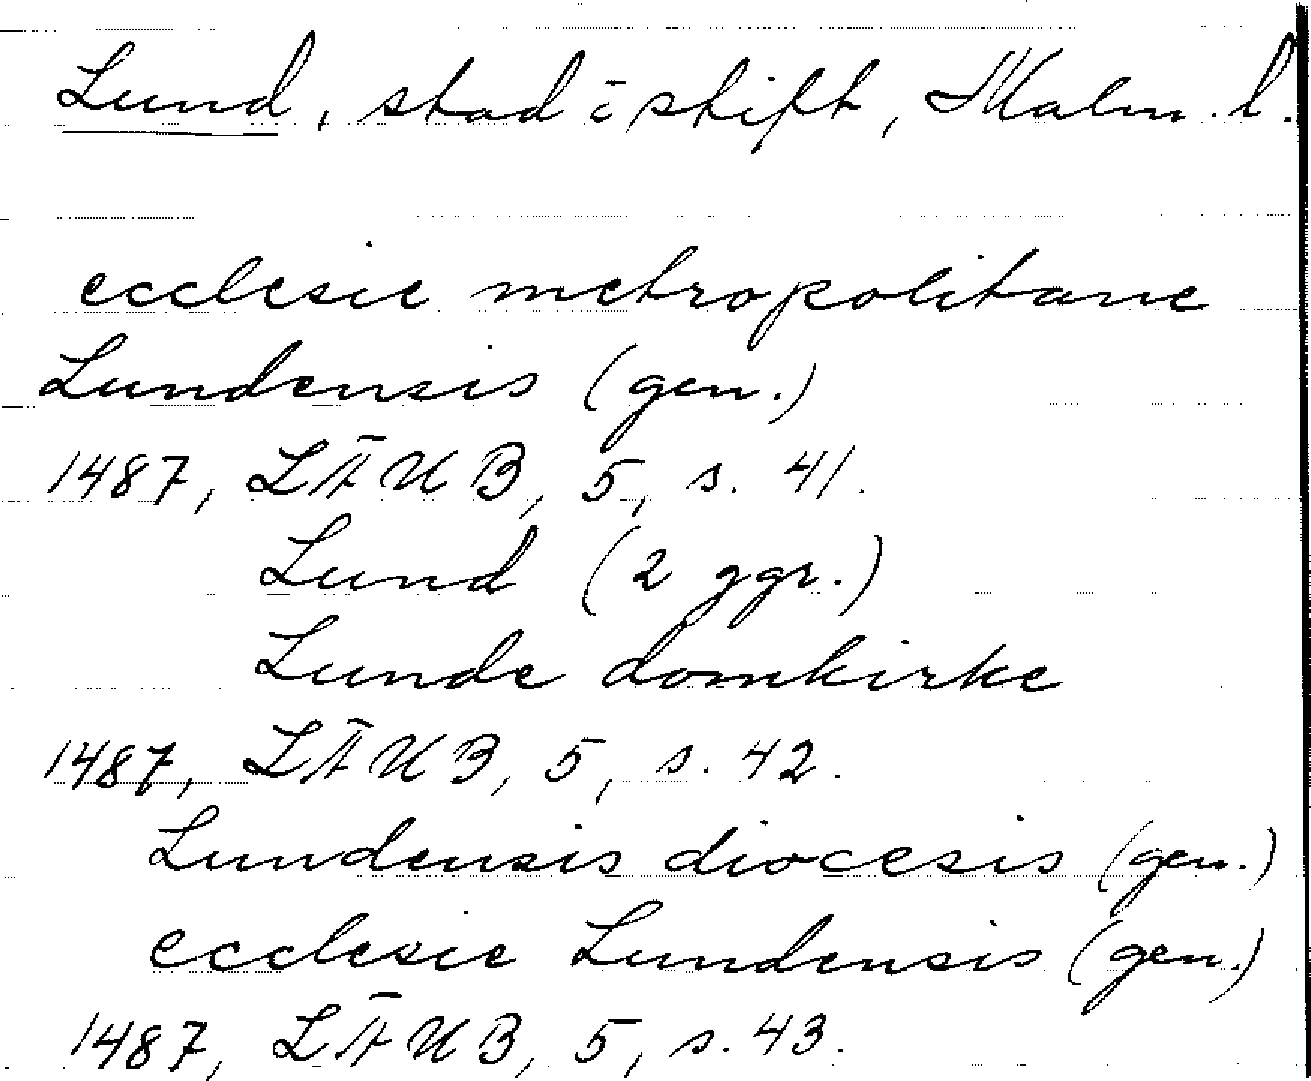 Lund, stad i skift, Malm. l.
ecclesie metropolitane
Lundensis (gen.)
1487, LÄUB, 5, s. 41.
Lund (2 ggr.)
Lunde domkirke
1487, LÄUB, 5, s. 42.
Lundensis diocesis (gen.)
ecclesie Lundensis (gen.)
1487, LÄUB, 5, s. 43.